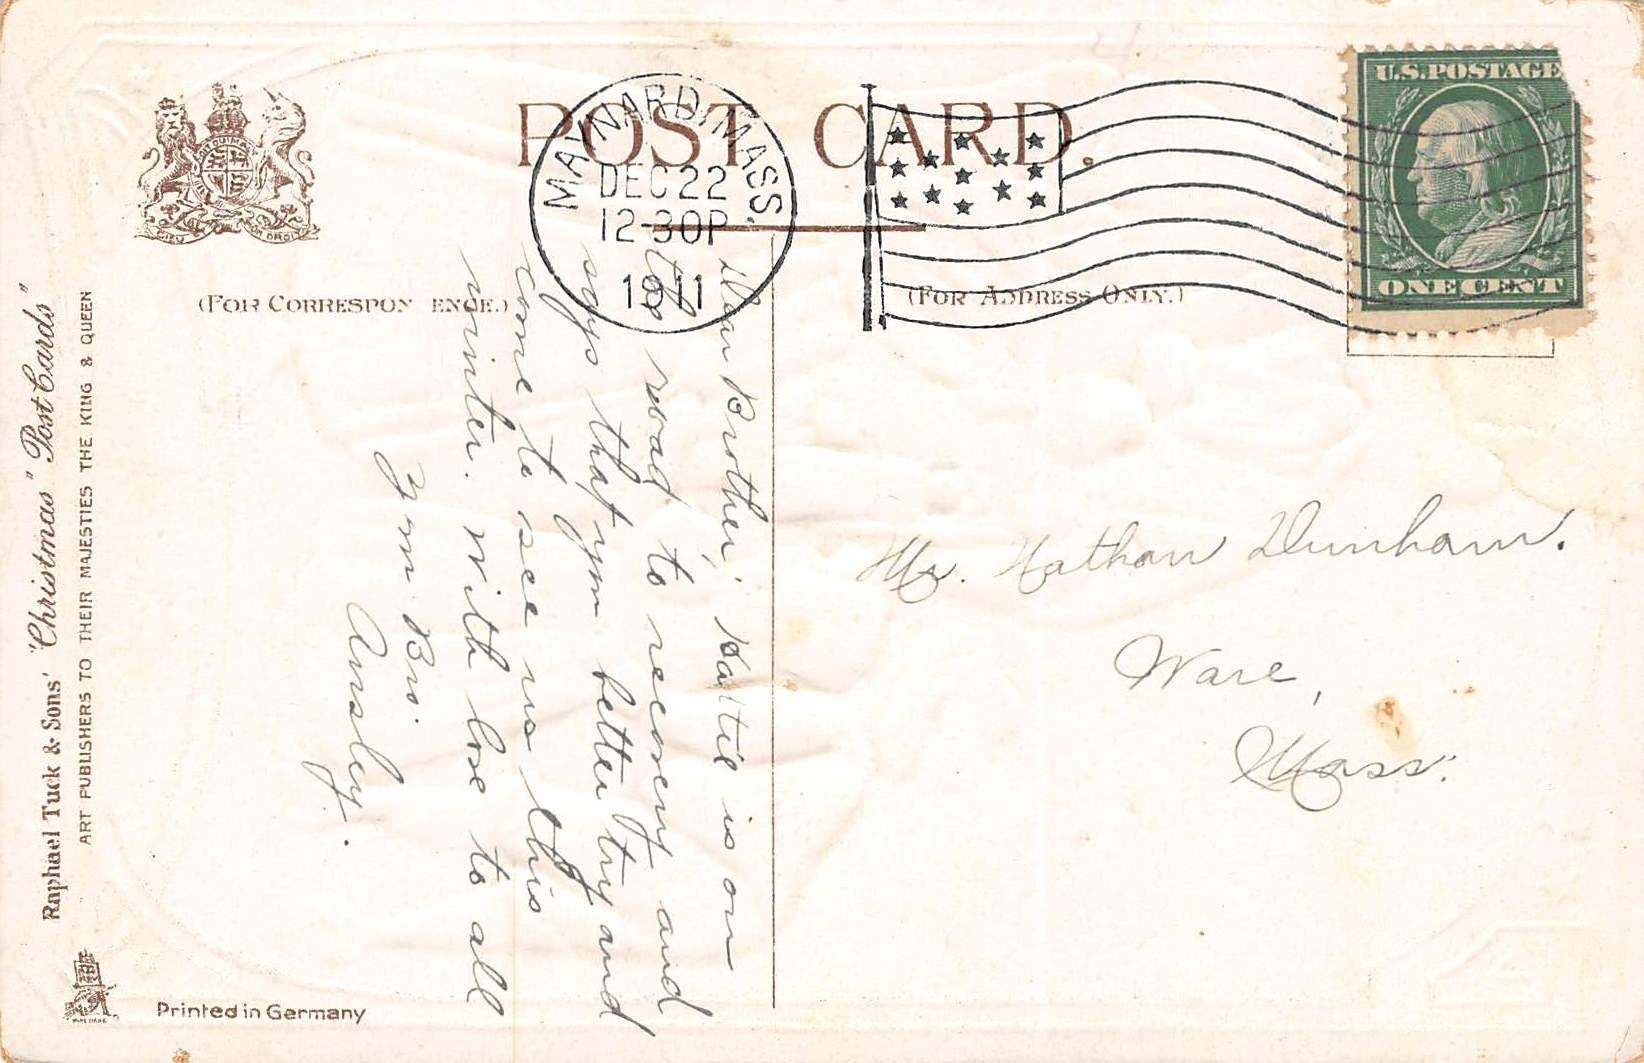 POST CARD.
MAYNARD, MASS.
DEC 22
12-30P
1911
U.S. POSTAGE
ONE CENT
DIEU ET MON DROIT
(FOR CORRESPONDENCE.)
(FOR ADDRESS ONLY.)
Dear Brother, Hattie is on
the road to recovery and
says that you better try and
come to see us this
winter. With love to all
Your Bro.
Ansley.
Mr. Nathan Dunham.
Ware,
Mass.
Raphael Tuck & Sons' "Christmas" Post Cards"
ART PUBLISHERS TO THEIR MAJESTIES THE KING & QUEEN
Printed in Germany